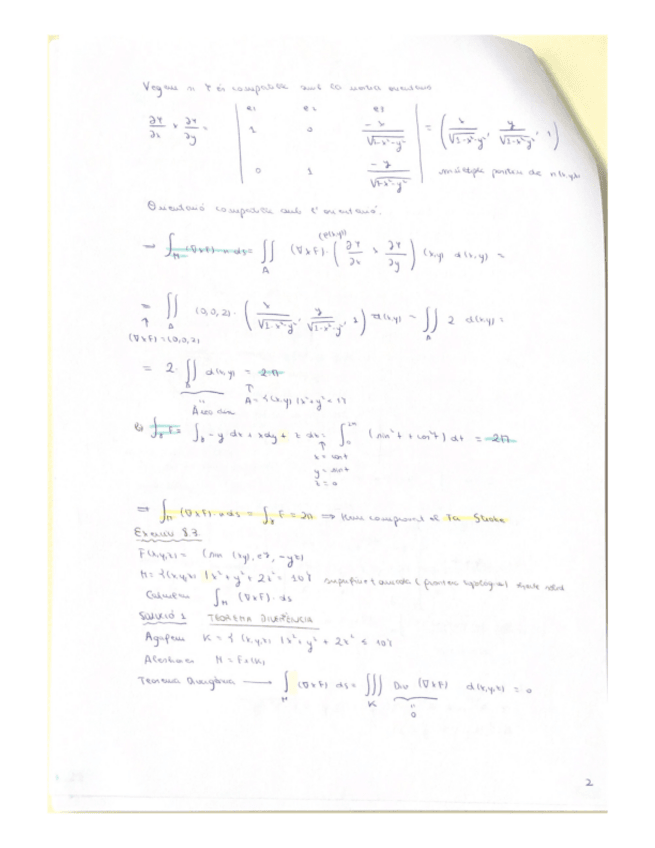 Vegem si Ψ és compatible amb la nostra orientació
∂Ψ/∂x × ∂Ψ/∂y = | e1 e2 e3 ; 1 0 -x/√1-x²-y² ; 0 1 -y/√1-x²-y² | = (x/√1-x²-y², y/√1-x²-y², 1)
múltiple positiu de n(x,y,z)
Orientació compatible amb l'orientació.
⇒ ∫_M (∇×F) n ds = ∬_A (∇×F)·(∂Ψ/∂x × ∂Ψ/∂y) (x,y) d(x,y) =
= ∬_A (0,0,2)·(x/√1-x²-y², y/√1-x²-y², 1) d(x,y) = ∬_A 2 d(x,y) =
↑
(∇×F)=(0,0,2)
= 2·∬_A d(x,y) = 2π
↑
A={(x,y) | x²+y²<1}
∫ F = ∫ -y dx + xdy + z dz = ∫_0^2π (sin²t + cos²t) dt = 2π
↑
x = cost
y = sint
z = 0
⇒ ∫_M (∇×F)·n ds = ∫ F = 2π ⇒ Hem comprovat el Ta Stoke
Exercici 8.7
F(x,y,z) = (sin(xy), e^z, -yz)
M = {(x,y,z) | x²+y²+2z² = 10}
Calculem ∫_M (∇×F)·ds
SOLUCIÓ 1 TEOREMA DIVERGÈNCIA
Agafem K = { (x,y,z) | x²+y²+2z² ≤ 10}
Aleshores M = Fr(K)
Teorema Divergència ⟶ ∫_M (∇×F) ds = ∭_K Div (∇×F) d(x,y,z) = 0
"
0
2